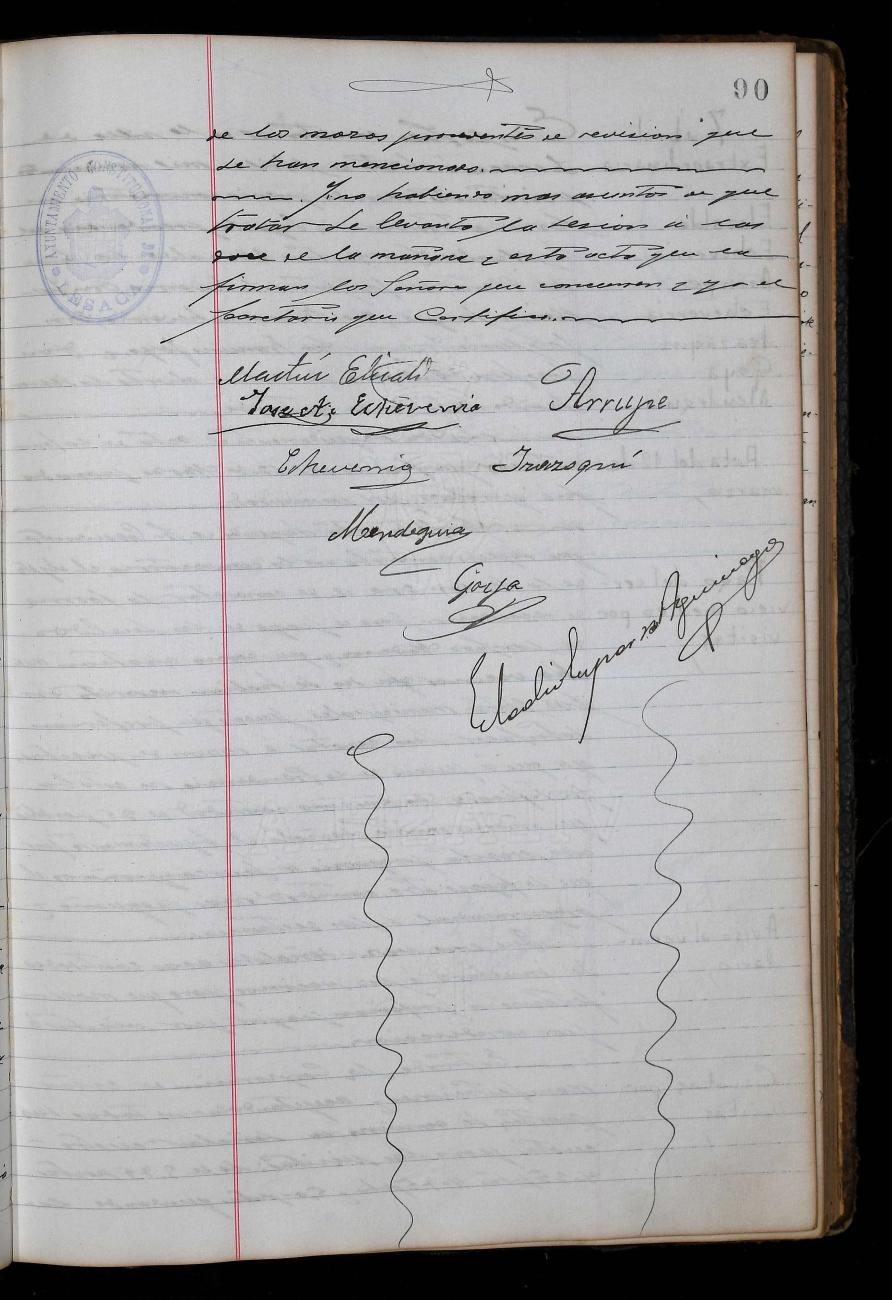 90
de los mozos provenientes de revision que
se han mencionado.
Y no habiendo mas asuntos de que
tratar se levantó la sesion á las
doce de la mañana y esta acta que la
firman los Señores que concurren y yo el
Secretario que Certifico.
AYUNTAMIENTO CONSTITUCIONAL DE
LESACA
Martín
José
Echeverria
Arrupe
Echeverria
Irazoqui
Mendeguia
Goya
Eladio